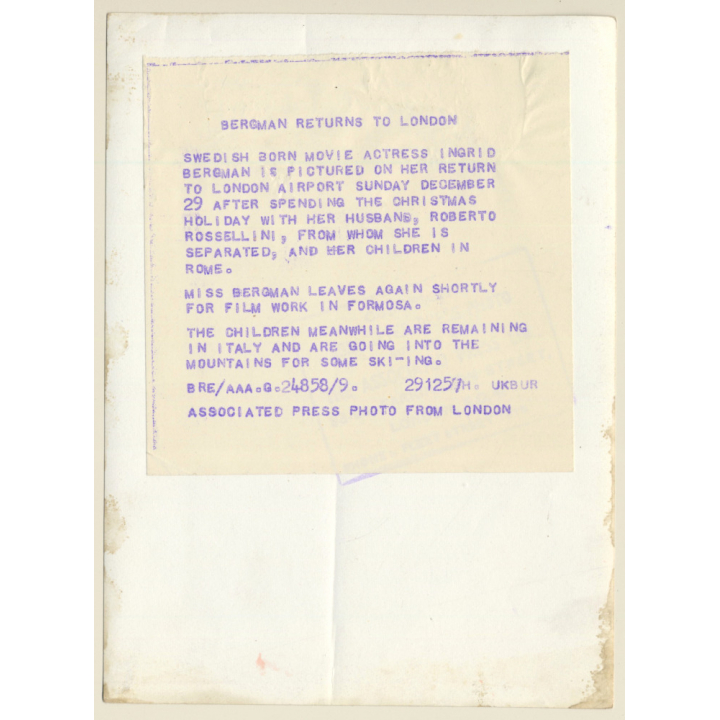 BERGMAN RETURNS TO LONDON
SWEDISH BORN MOVIE ACTRESS INGRID
BERGMAN IS PICTURED ON HER RETURN
TO LONDON AIRPORT SUNDAY DECEMBER
29 AFTER SPENDING THE CHRISTMAS
HOLIDAY WITH HER HUSBAND, ROBERTO
ROSSELLINI, FROM WHOM SHE IS
SEPARATED, AND HER CHILDREN IN
ROME.
MISS BERGMAN LEAVES AGAIN SHORTLY
FOR FILM WORK IN FORMOSA.
THE CHILDREN MEANWHILE ARE REMAINING
IN ITALY AND ARE GOING INTO THE
MOUNTAINS FOR SOME SKI-ING.
BRE/AAA.G.24858/9. 291257H. UKBUR
ASSOCIATED PRESS PHOTO FROM LONDON